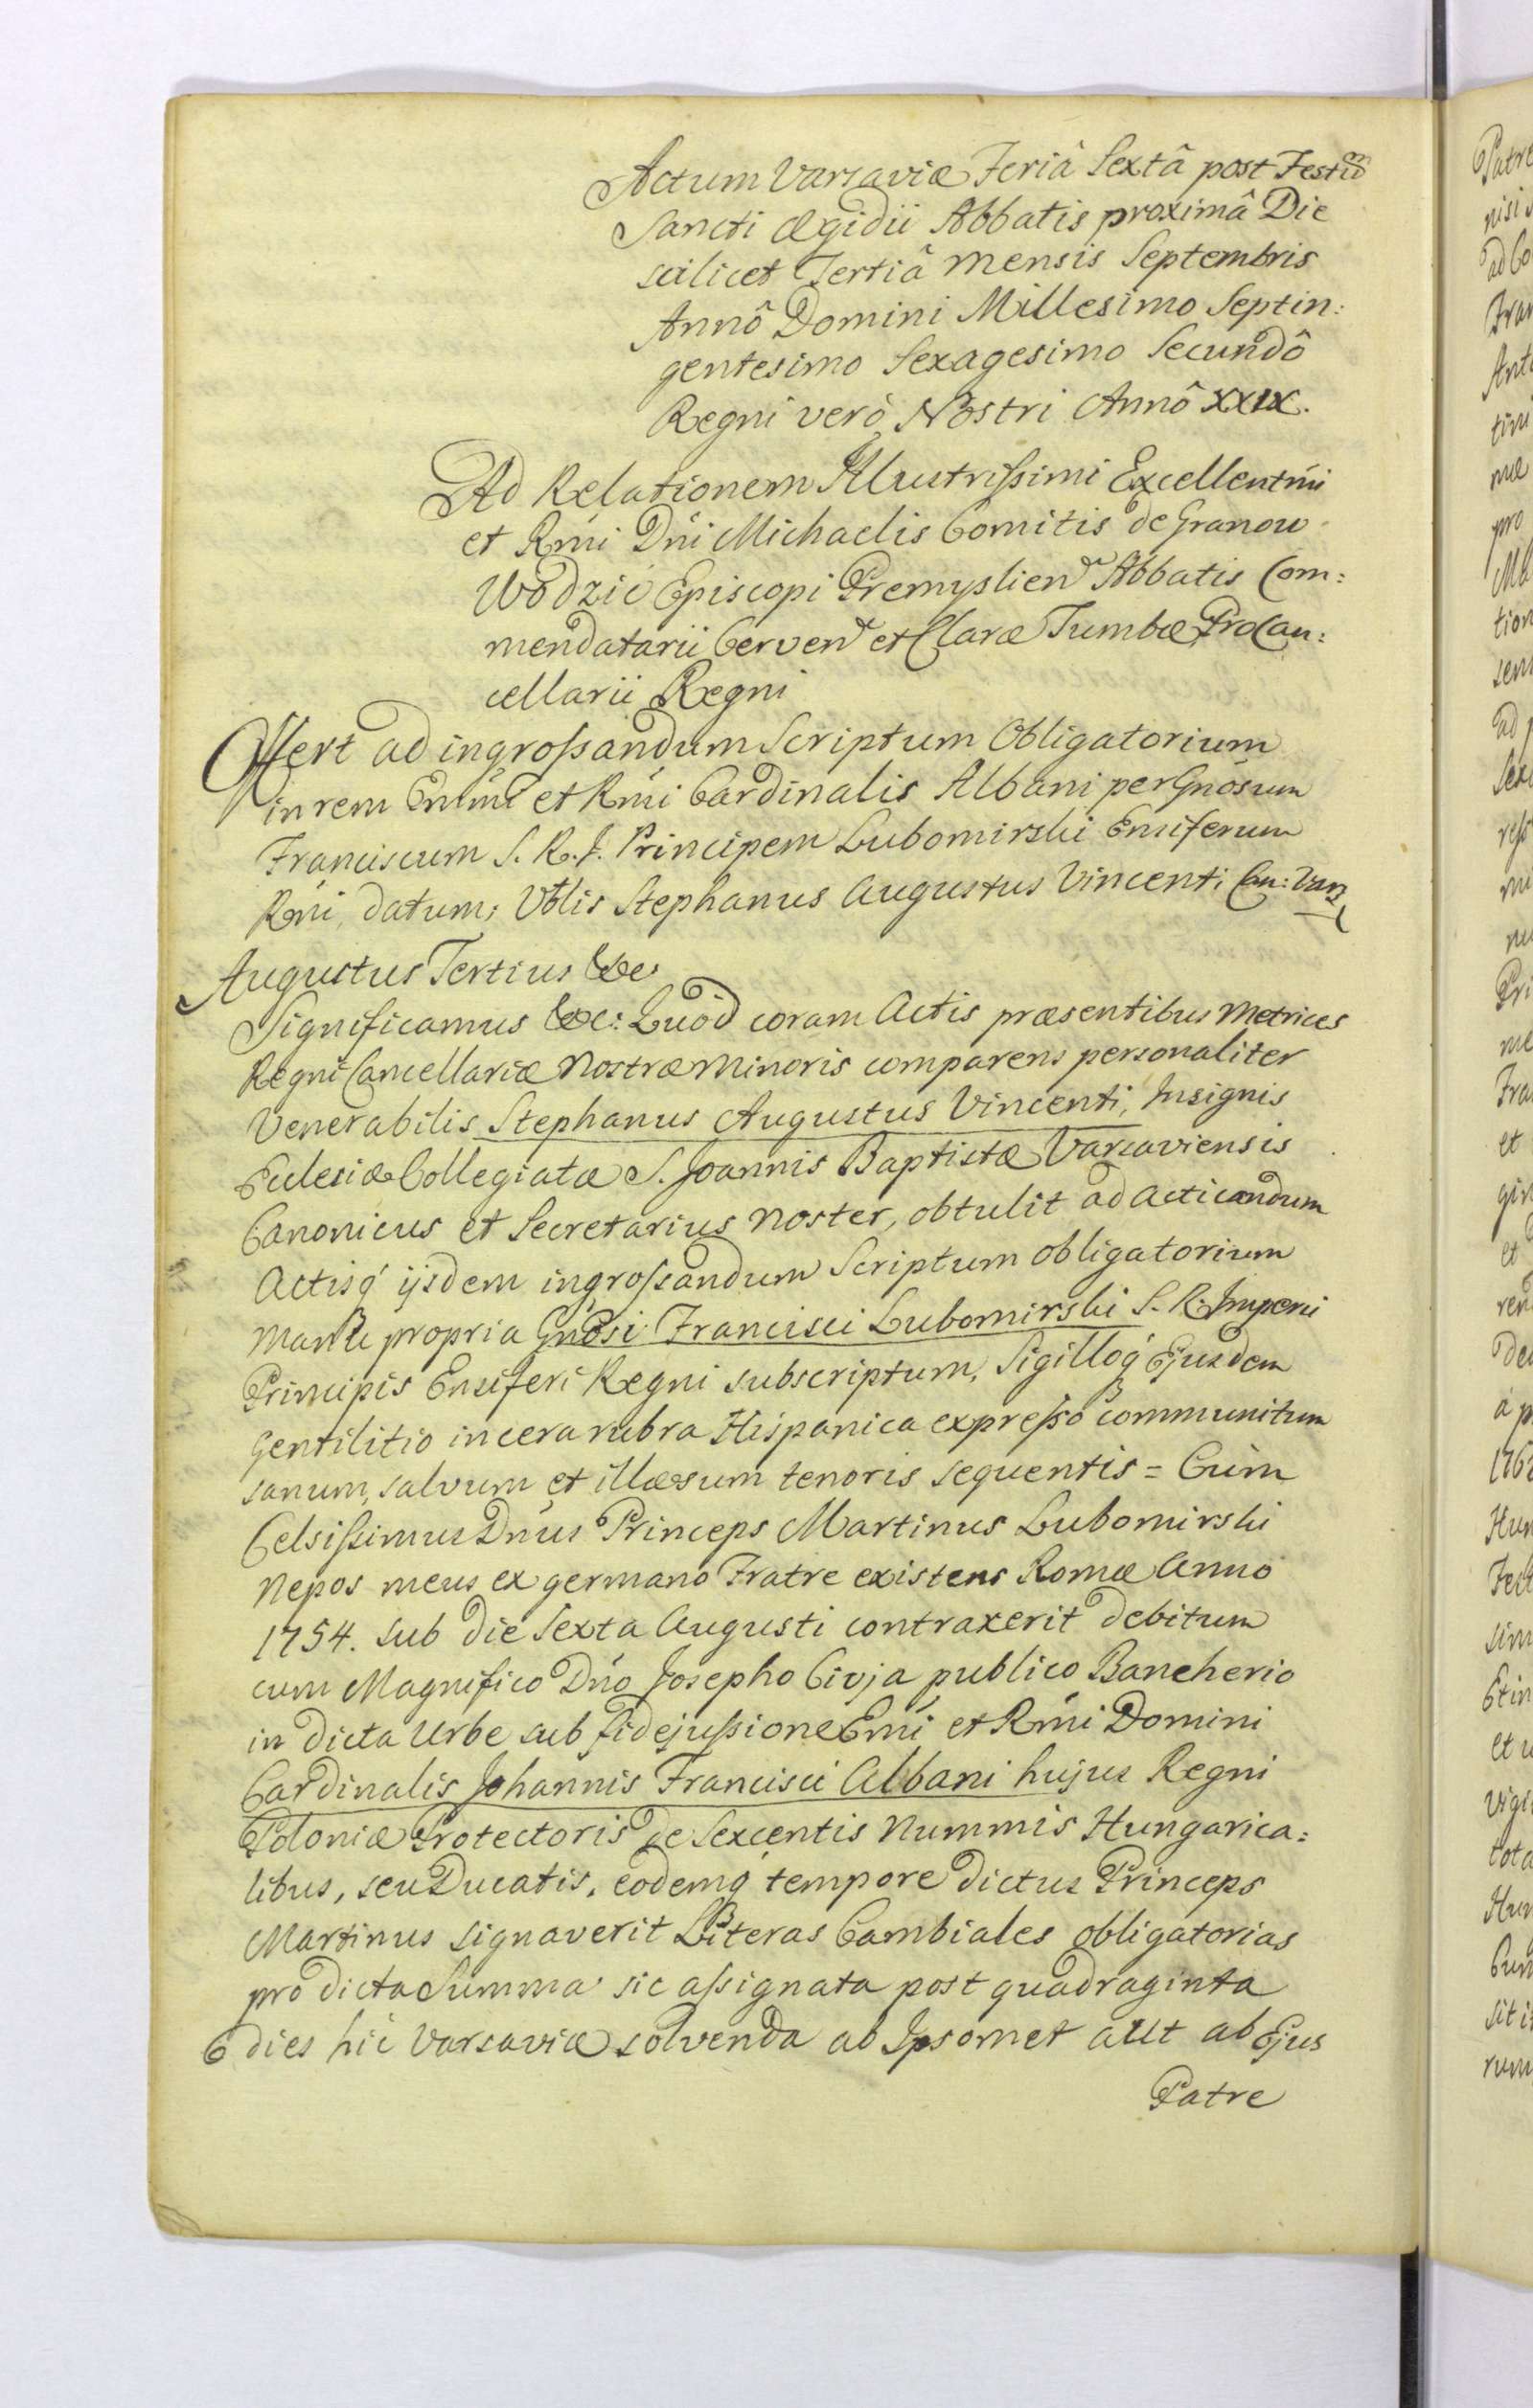 Actum Varsaviæ Feriâ Sextâ post Festum
Sancti Ægidii Abbatis proximâ Die
scilicet Tertiâ Mensis Septembris
Annô Domini Millesimo Septin:
gentesimo Sexagesimo Secundô
Regni verò Nostri Annô XXIX.
Ad Relationem Illustrissimi Excellentmi
et Rmi Dni Michaelis Comitis de Granow
Wodzic Episcopi Premyslien Abbatis Com:
mendatarii Cerven et Claræ Tumbæ ProCan:
cellarii Regni
Offert ad ingrossandum Scriptum Obligatorium
in rem Emmi et Rmi Cardinalis Albani per Gnosum
Franciscum S. R. J. Principem Lubomirski Ensiferum
Rni, datum; Vblis Stephanus Augustus Vincenti Can: Vars
Augustus Tertius &c
Significamus &c: Quod coram Actis præsentibus Metrices
Regni Cancellariæ Nostræ Minoris comparens personaliter
Venerabilis Stephanus Augustus Vincenti, Insignis
Ecclesiæ Collegiatæ S. Joannis Baptistæ Varsaviensis
Canonicus et Secretarius Noster, obtulit ad acticandum
Actisq́ ijsdem ingrossandum Scriptum obligatorium
Manu propria Gnosi Francisci Lubomirski S. R. Imperii
Principis Ensiferi Regni subscriptum, Sigilloq́ Ejusdem
Gentilitio in cera rubra Hispanica expresso communitum
sanum, salvum et illæsum tenoris sequentis = Cùm
Celsissimus Dnus Princeps Martinus Lubomirski
Nepos meus ex germano Fratre existens Romæ Anno
1754. sub die Sexta Augusti contraxerit debitum
cum Magnifico Dno Josepho Civja publico Bancherio
in dicta Urbe sub fidejussione Emi et Rmi Domini
Cardinalis Johannis Francisci Albani hujus Regni
Poloniæ Protectoris de Sexcentis Nummis Hungarica:
libus, seu Ducatis, eodemq́ tempore dictus Princeps
Martinus signaverit Literas Cambiales obligatorias
pro dicta Summa sic assignata post quadraginta
dies hic Varsaviæ solvenda ab Ipsomet aut ab Ejus
Patre